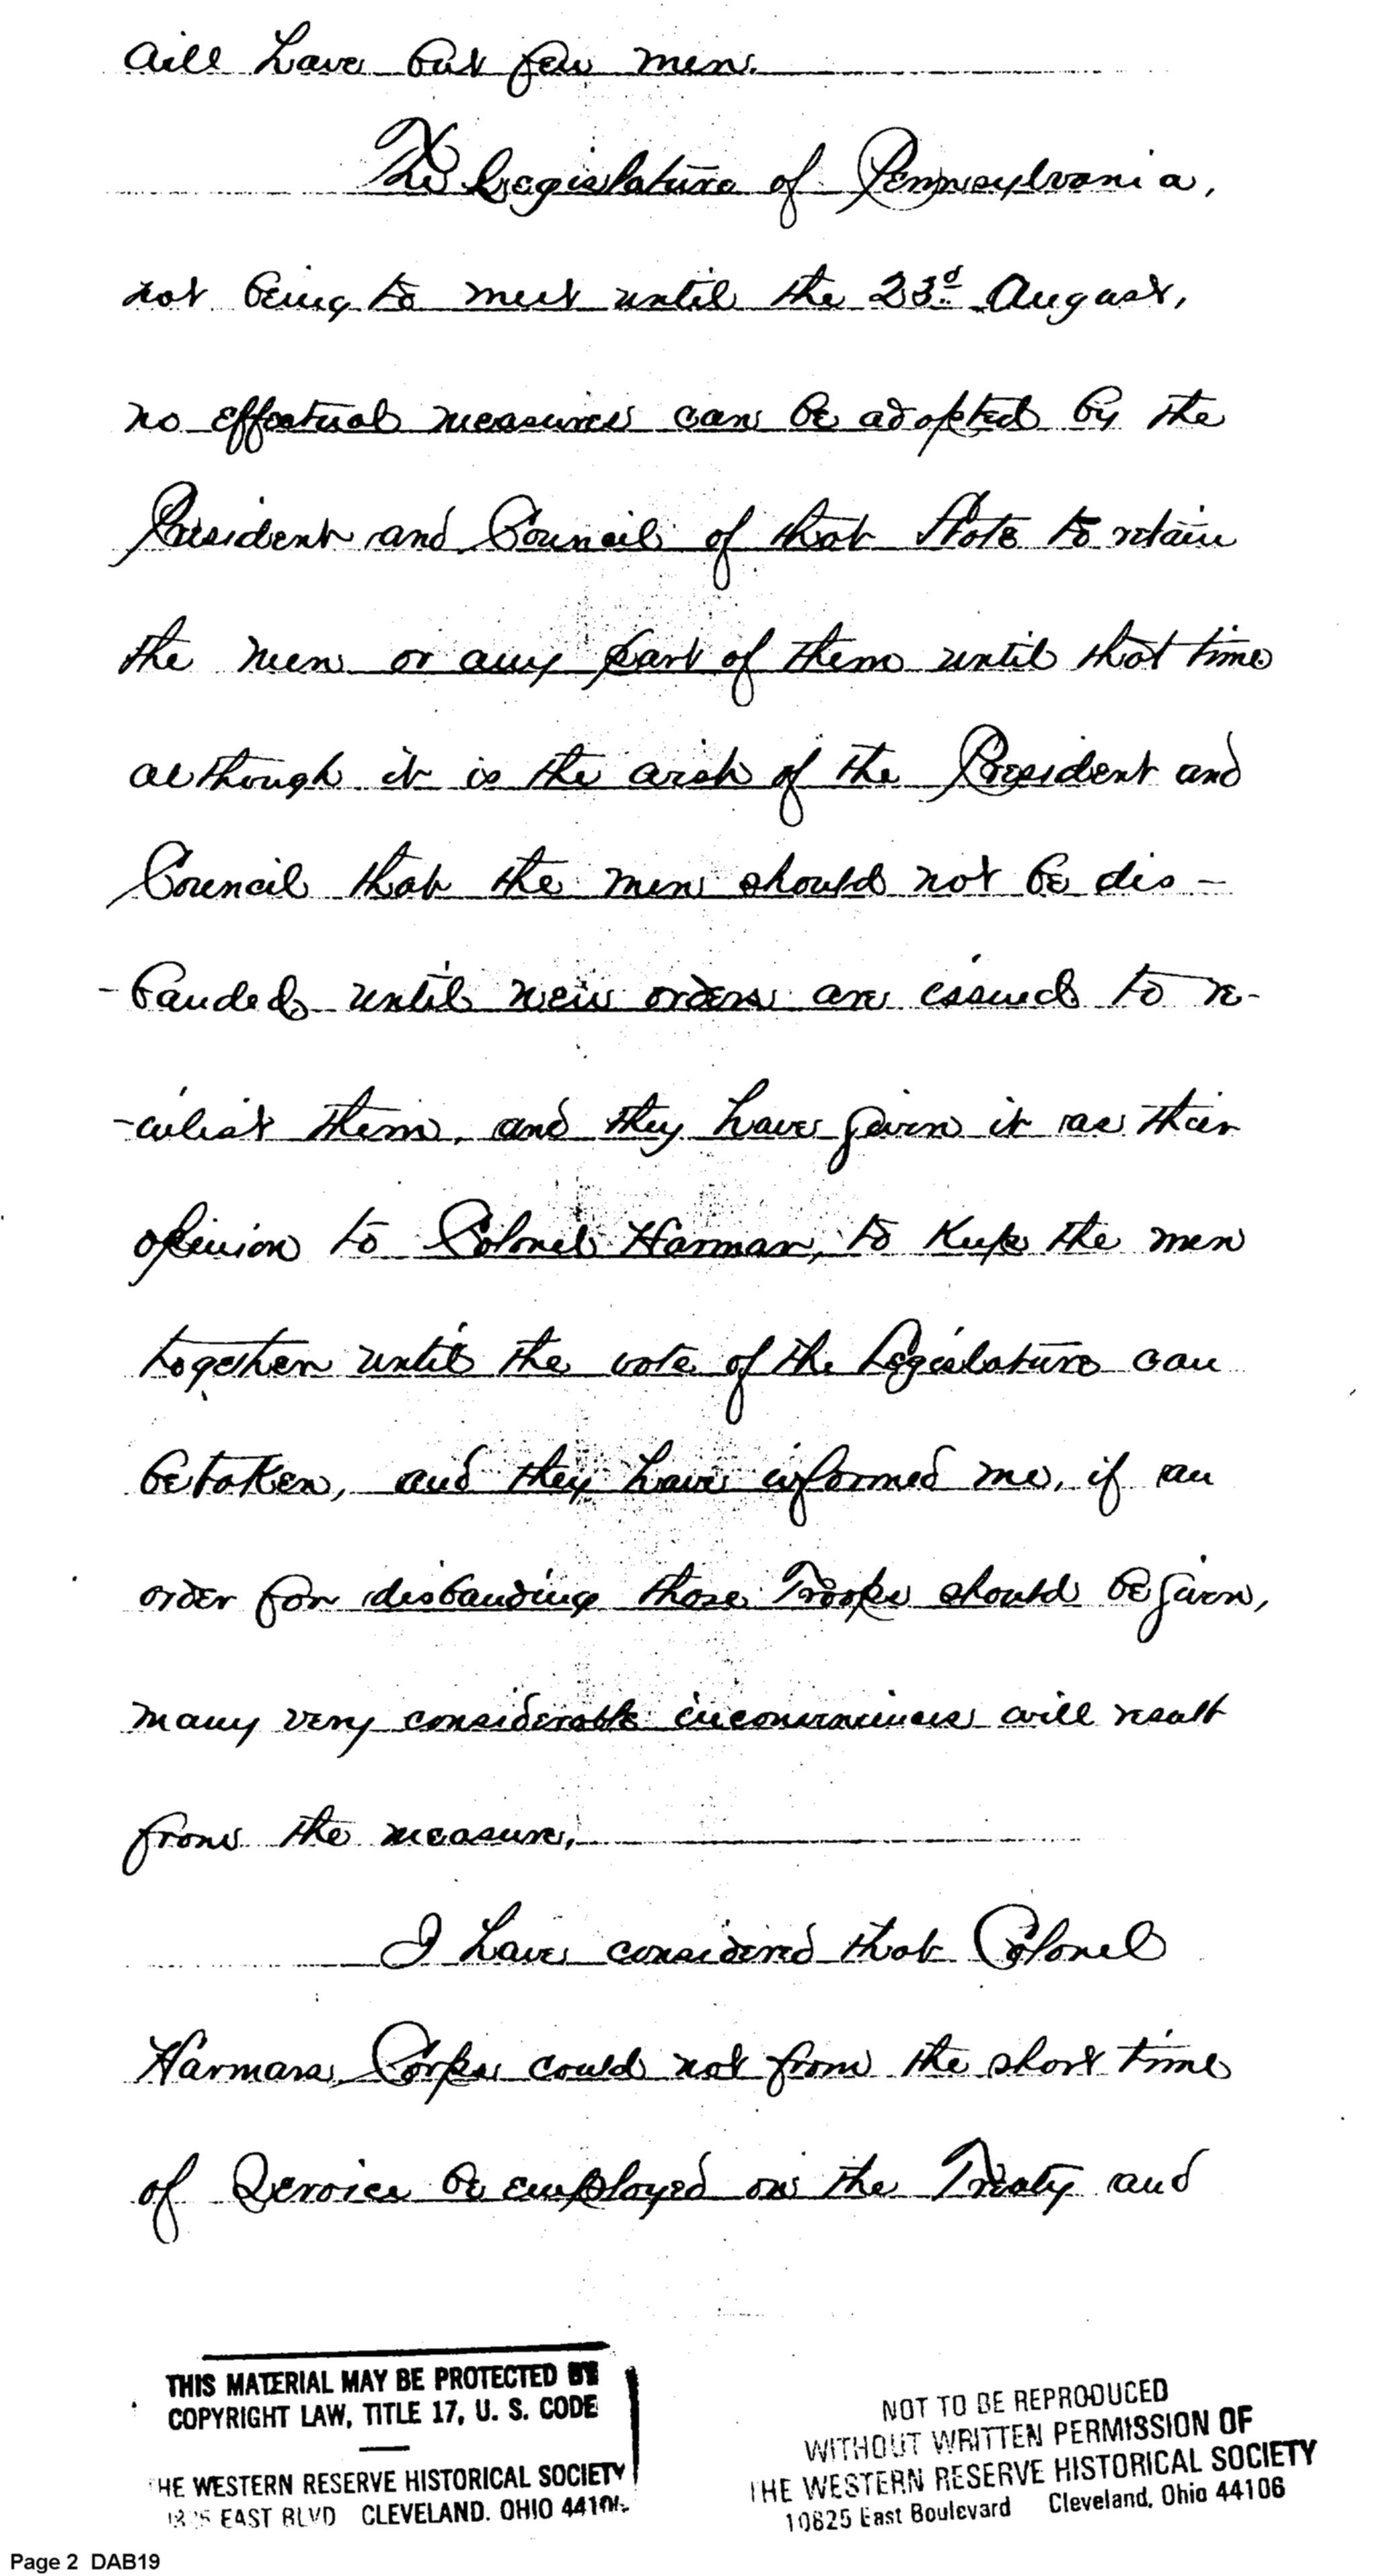 will have but few men.
The Legislature of Pennsylvania,
not being to meet until the 23d August,
no effectual measures can be adopted by the
President and Council of that State to retain
the men or any part of them until that time
although it is the wish of the President and
Council that the men should not be dis-
-banded until new orders are issued to re-
-enlist them, and they have given it as their
opinion to Colonel Harmar, to keep the men
together until the vote of the Legislature can
be taken, and they have informed me, if an
order for disbanding those Troops should be given,
many very considerable inconveniences will result
from the measure,
I have considered that Colonel
Harmars Corps could not from the short time
of Service be employed on the Treaty and
THIS MATERIAL MAY BE PROTECTED BY
COPYRIGHT LAW, TITLE 17, U. S. CODE
HE WESTERN RESERVE HISTORICAL SOCIETY
EAST BLVD CLEVELAND. OHIO 44106
NOT TO BE REPRODUCED
WITHOUT WRITTEN PERMISSION OF
THE WESTERN RESERVE HISTORICAL SOCIETY
10825 East Boulevard Cleveland, Ohio 44106
Page 2 DAB19